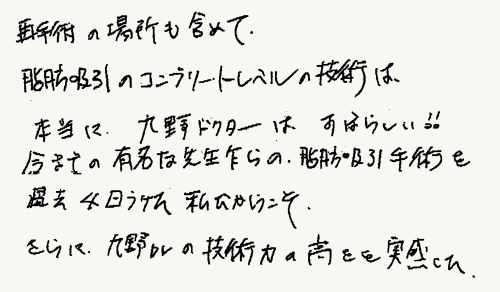 再手術の場所も含めて、
脂肪吸引のコンプリートレベルの技術は、
本当に、九野ドクターは すばらしい!!
今までの有名な先生たちの、脂肪吸引手術を
過去4回うけた私だからこそ、
さらに、九野Drの技術力の高さを実感した。